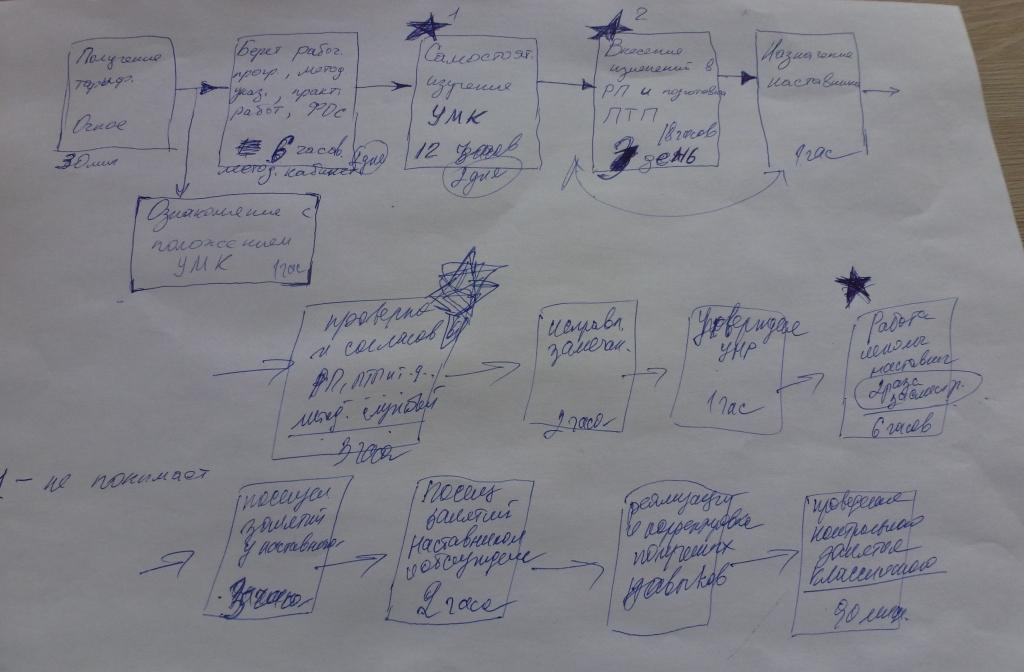 1
2
Получение
Очное
30 мин
Берет работ.
прогр., метод
указ., практ.
работ, ФОС
6 часов
метод. кабинет
Самостоят.
изучение
УМК
12 часов
2 дня
Внесение
изменений в
РП и подготовка
ПТП
18 часов
3 день
Назначение
наставника
1 час
Ознакомление с
положением
УМК 1 час
проверка
и согласов
РП, ПТП и т.д.
метод. службой
3 часа
исправл.
замечан.
2 часа
Утверждение
УПР
1 час
Работа
наставник
2 раза
6 часов
1 – не понимает
посещен.
занятий
у наставника
3 часа
Посещ
занятий
наставником
и обсуждение
2 часа
реализация
и корректировка
полученных
навыков
проведение
контрольного
занятия
классического
90 мин.